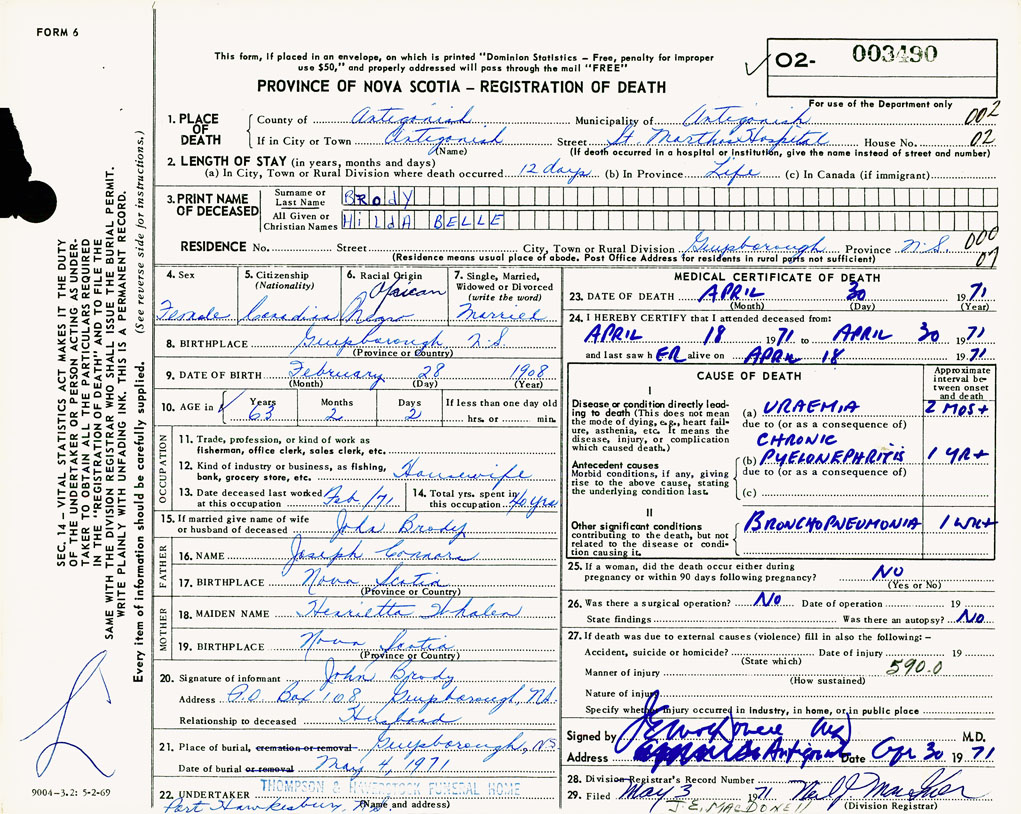 FORM 6
This form, if placed in an envelope, on which is printed "Dominion Statistics - Free, penalty for improper
use $50," and properly addressed will pass through the mail "FREE"
PROVINCE OF NOVA SCOTIA - REGISTRATION OF DEATH
✓ O2- 003490
For use of the Department only
002
1. PLACE OF DEATH
County of Antigonish Municipality of Antigonish
If in City or Town Antigonish Street St. Marthas Hospital House No. 02
(Name) (If death occurred in a hospital or institution, give the name instead of street and number)
2. LENGTH OF STAY (in years, months and days)
(a) In City, Town or Rural Division where death occurred 12 days (b) In Province Life (c) In Canada (if immigrant)
3. PRINT NAME OF DECEASED
Surname or Last Name BRodY
All Given or Christian Names HiLdA BELLE
RESIDENCE No. Street City, Town or Rural Division Guysborough Province N.S. 000
(Residence means usual place of abode. Post Office Address for residents in rural parts not sufficient) 07
4. Sex Female
5. Citizenship (Nationality) Canadian
6. Racial Origin African Negro
7. Single, Married, Widowed or Divorced (write the word) Married
8. BIRTHPLACE Guysborough N.S.
(Province or Country)
9. DATE OF BIRTH February 28 1908
(Month) (Day) (Year)
10. AGE in ✓ Years 63 Months 2 Days 2 If less than one day old hrs. or min.
OCCUPATION
11. Trade, profession, or kind of work as
fisherman, office clerk, sales clerk, etc.
12. Kind of industry or business, as fishing,
bank, grocery store, etc. Housewife
13. Date deceased last worked at this occupation Feb /71
14. Total yrs. spent in this occupation 40 yrs
15. If married give name of wife
or husband of deceased John Brody
FATHER
16. NAME Joseph Connors
17. BIRTHPLACE Nova Scotia
(Province or Country)
MOTHER
18. MAIDEN NAME Henrietta Whalen
19. BIRTHPLACE Nova Scotia
(Province or Country)
20. Signature of informant John Brody
Address P.O. Box 108 Guysborough, N.S.
Relationship to deceased Husband
21. Place of burial, cremation or removal Guysborough, NS
Date of burial or removal May 4, 1971
THOMPSON & HAVERSTOCK FUNERAL HOME
22. UNDERTAKER Port Hawkesbury,
(Name and address)
MEDICAL CERTIFICATE OF DEATH
23. DATE OF DEATH APRIL 30 1971
(Month) (Day) (Year)
24. I HEREBY CERTIFY that I attended deceased from:
APRIL 18 1971 to APRIL 30 1971
and last saw h ER alive on APRIL 18 1971
CAUSE OF DEATH
Approximate interval between onset and death
I
Disease or condition directly leading to death (This does not mean the mode of dying, e.g., heart failure, asthenia, etc. It means the disease, injury, or complication which caused death.)
(a) URAEMIA 2 MOS+
due to (or as a consequence of)
Antecedent causes
Morbid condition, if any, giving rise to the above cause, stating the underlying condition last.
CHRONIC
(b) PYELONEPHRITIS 1 YR+
due to (or as a consequence of)
(c)
II
Other significant conditions
contributing to the death, but not related to the disease or condition causing it.
BRONCHOPNEUMONIA 1 WK+
25. If a woman, did the death occur either during
pregnancy or within 90 days following pregnancy? NO
(Yes or No)
26. Was there a surgical operation? NO Date of operation 19
State findings Was there an autopsy? NO
27. If death was due to external causes (violence) fill in also the following: -
Accident, suicide or homicide? Date of injury 19
(State which)
Manner of injury 590.0
(How sustained)
Nature of injury
Specify whether injury occurred in industry, in home, or in public place
Signed by M.D.
Address Antigonish Date Apr 30 1971
28. Division Registrar's Record Number
29. Filed May 3 1971
J. E. MACDONELL (Division Registrar)
SEC. 14 - VITAL STATISTICS ACT MAKES IT THE DUTY
OF THE UNDERTAKER OR PERSON ACTING AS UNDER-
TAKER TO OBTAIN ALL THE PARTICULARS REQUIRED
IN THE "REGISTRATION OF DEATH" AND TO FILE THE
SAME WITH THE DIVISION REGISTRAR WHO SHALL ISSUE THE BURIAL PERMIT.
WRITE PLAINLY WITH UNFADING INK. THIS IS A PERMANENT RECORD.
Every item of information should be carefully supplied. (See reverse side for instructions.)
9004-3.2: 5-2-69